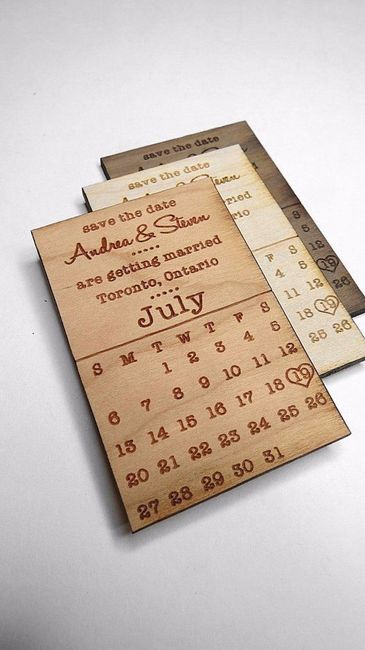 save the date
save the date
Andrea & Steven
married
Ontario
S
5
12
19
26
F S
4 5
11 12
18 19
25 26
save the date
Andrea & Steven
are getting married
Toronto, Ontario
July
S M T W T F S
1 2 3 4 5
6 7 8 9 10 11 12
13 14 15 16 17 18 19
20 21 22 23 24 25 26
27 28 29 30 31